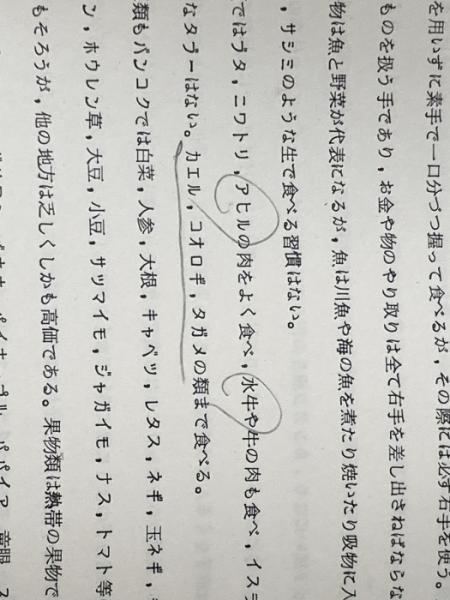 を用いずに素手で一口分づつ握って食べるが，その際には必ず右手を使う。
ものを扱う手であり，お金や物のやり取りは全て右手を差し出さねばならな
物は魚と野菜が代表になるが，魚は川魚や海の魚を煮たり焼いたり吸物に入
，サシミのような生で食べる習慣はない。
ではブタ，ニワトリ，アヒルの肉をよく食べ，水牛や牛の肉も食べ，イスラ
なタブーはない。カエル，コオロギ，タガメの類まで食べる。
類もバンコクでは白菜，人参，大根，キャベツ，レタス，ネギ，玉ネギ，
ン，ホウレン草，大豆，小豆，サツマイモ，ジャガイモ，ナス，トマト等
もそろうが，他の地方は乏しくしかも高価である。果物類は熱帯の果物で
パイナップル，パパイア，竜眼，ス